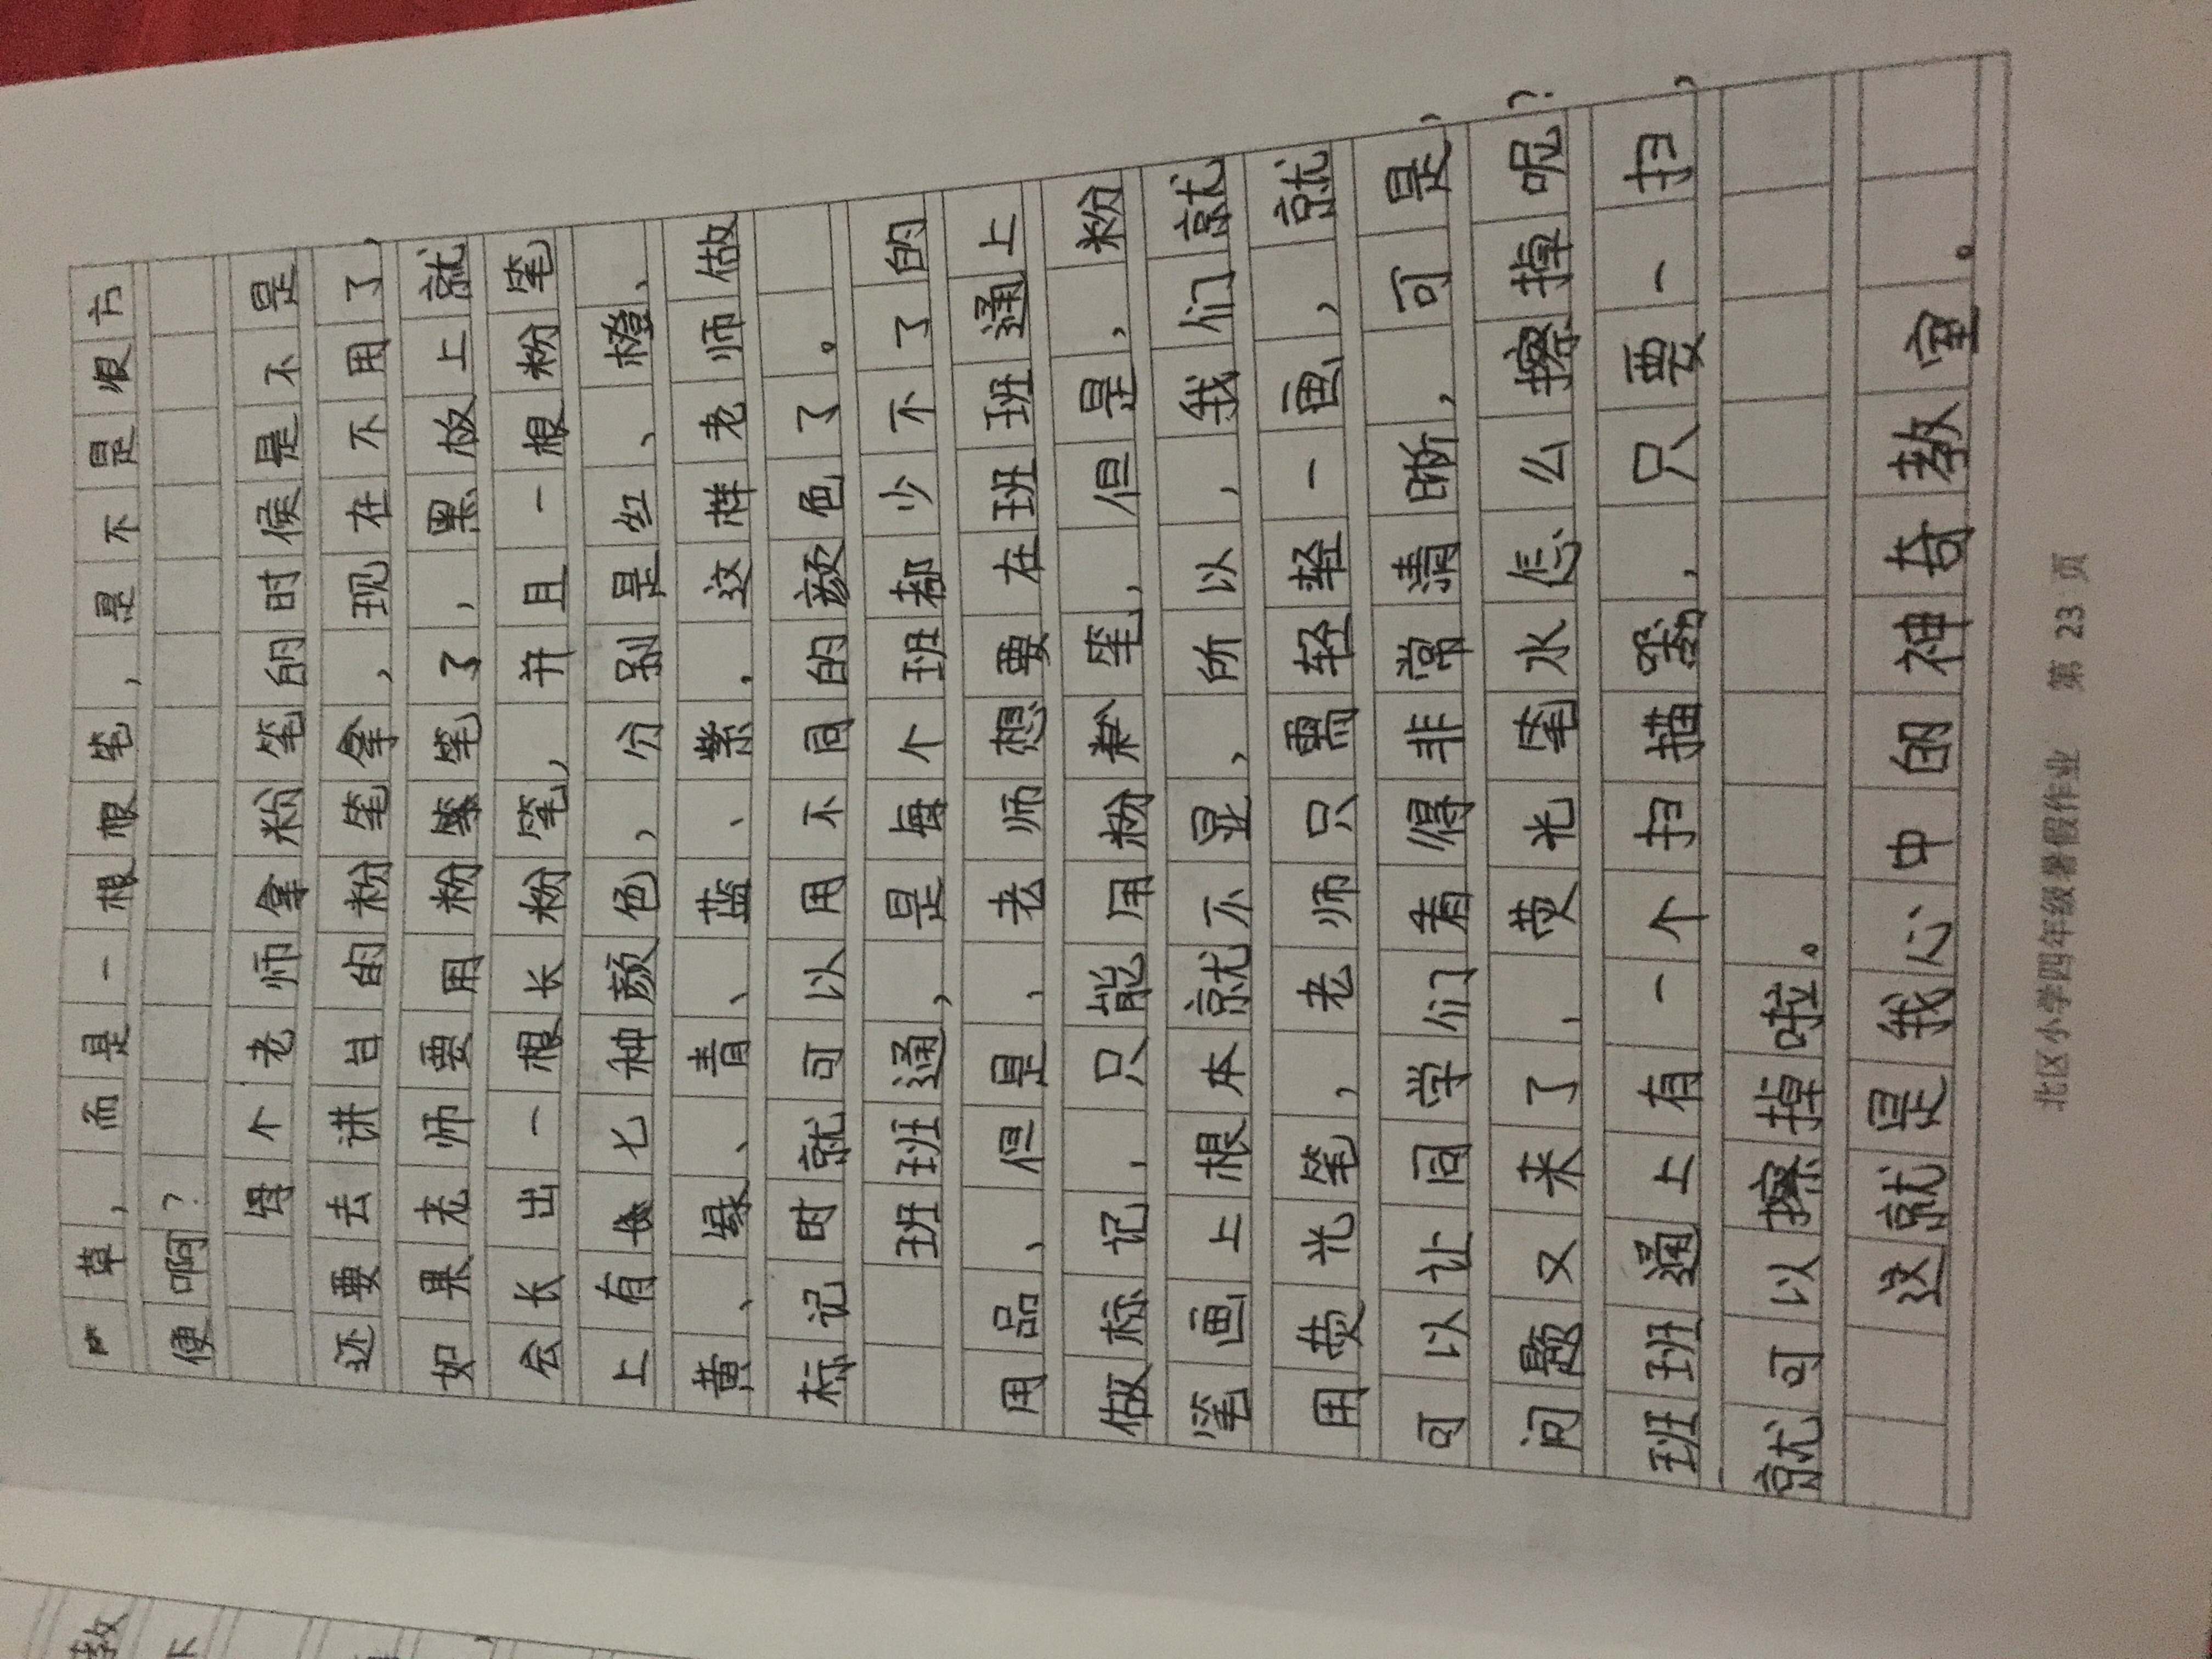 草，而是一根根笔，是不是很方
便啊？
每个老师拿粉笔的时候是不是
还要去讲台的粉笔拿，现在不用了，
如果老师要用粉笔了，黑板上就
会长出一根长粉笔，并且一根粉笔
上有七种颜色，分别是红、橙、
黄、绿、青、蓝、紫，这样老师做
标记时就可以用不同的颜色了。
班班通，是每个班都少不了的
用品，但是，老师想要在班班通上
做标记，只能用粉笔，但是，粉
笔画上根本就不显，所以，我们就
用荧光笔，老师只需轻轻一画，就
可以让同学们看得非常清晰，可是，
问题又来了，荧光笔水怎么擦掉呢？
班班通上有一个扫描器，只要一扫，
就可以擦掉啦。
这就是我心中的神奇教室。
北区小学四年级暑假作业 第 23 页
教